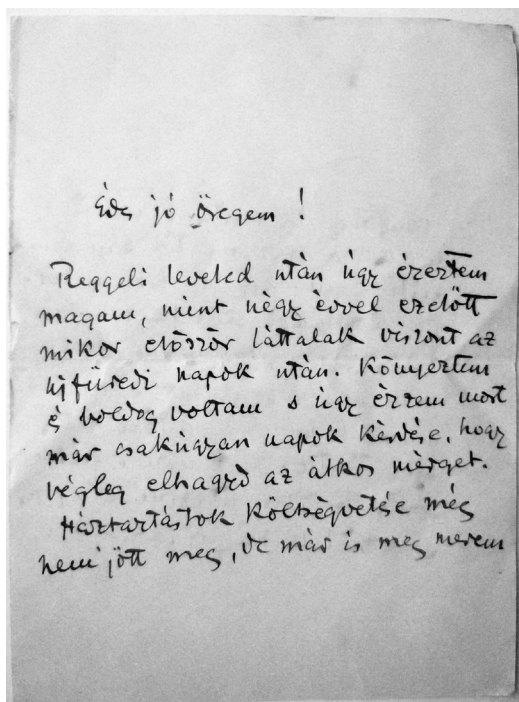 Édes jó öregem!
Reggeli leveled után úgy éreztem
magam, mint négy évvel ezelőtt
mikor először láttalak viszont az
ujfüredi napok után. Könyeztem
és boldog voltam s úgy érzem most
már csakúgyan napok kérdése, hogy
végleg elhagyd az átkos mérget.
Háztartástok költségvetése még
nem jött meg, de már is meg merem